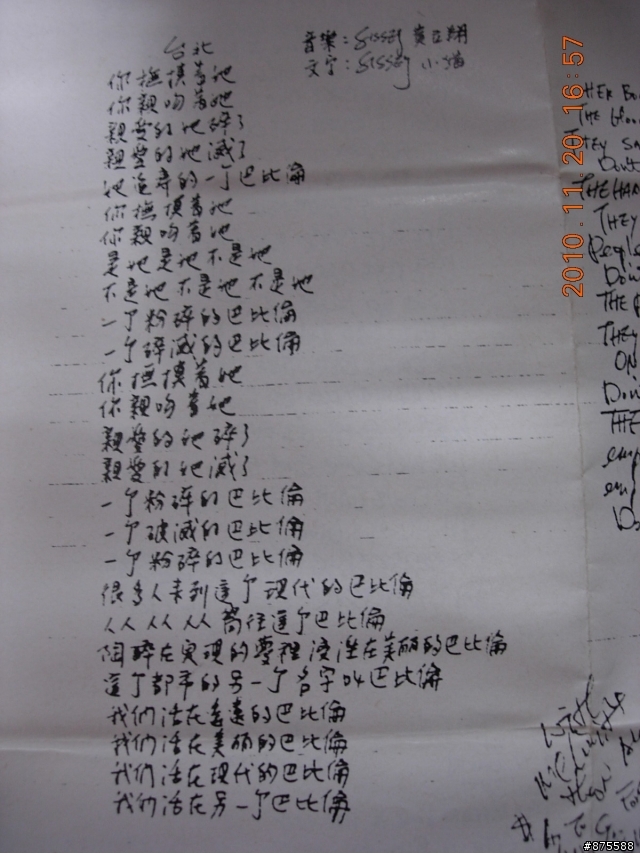 台北
音樂：Sissey 黃亞翔
文字：Sissey 小貓
你撫摸著她
你親吻著她
親愛的她碎了
親愛的她滅了
她追尋的一个巴比倫
你撫摸著她
你親吻著她
是她是她不是她
不是她不是她不是她
一个粉碎的巴比倫
一个碎滅的巴比倫
你撫摸著她
你親吻著她
親愛的她碎了
親愛的她滅了
一个粉碎的巴比倫
一个破滅的巴比倫
一个粉碎的巴比倫
很多人来到這个現代的巴比倫
人人 人人 人人 嚮往這个巴比倫
陶醉在實現的夢裡 浸淫在美丽的巴比倫
這个都市的另一个名字叫巴比倫
我們活在 的巴比倫
我們活在美丽的巴比倫
我們活在現代的巴比倫
我們活在另一个巴比倫
HER
THE
THEY
Don't
THE HA
THEY
People
Don
THE
THEY
ON
Don
THE
emp
emp
Do
2010.11.20 16:57
#875588